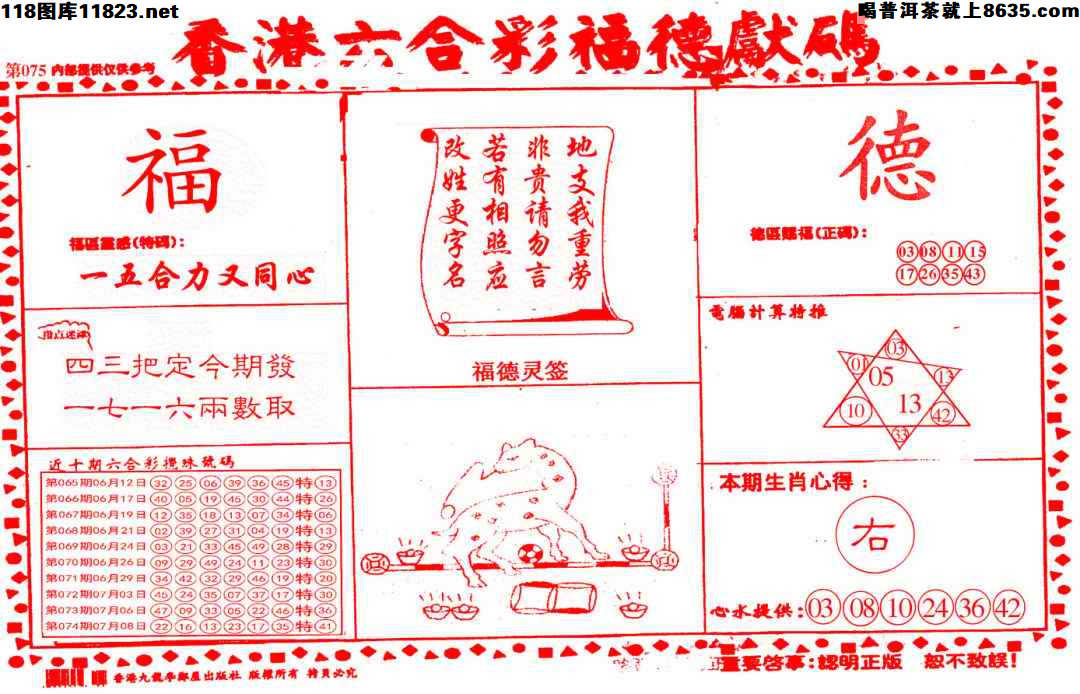 118图库11823.net
喝普洱茶就上8635.com
香港六合彩福德獻碼
第075 内部提供仅供参考
福
福區靈感(特碼):
一五合力又同心
四三把定今期發
一七一六兩數取
近十期六合彩攪珠號碼
第065期06月12日 32 25 06 39 36 45 特 13
第066期06月17日 40 05 19 45 30 44 特 26
第067期06月19日 12 35 18 13 07 34 特 06
第068期06月21日 02 39 27 31 04 19 特 13
第069期06月24日 03 21 33 45 49 28 特 29
第070期06月26日 09 29 49 24 11 23 特 30
第071期06月29日 34 42 32 29 46 19 特 20
第072期07月03日 45 24 35 07 37 17 特 30
第073期07月06日 47 09 33 05 22 46 特 36
第074期07月08日 22 16 13 23 17 35 特 41
地支我重劳
非贵请勿言
若有相照应
改姓更字名
福德灵签
德
德區賜福(正碼):
03 08 11 15
17 26 35 43
電腦計算特推
03
01 05 13
10 13 42
33
本期生肖心得:
右
心水提供: 03 08 10 24 36 42
香港九龍華鄰屋出版社 版權所有 拷貝必究
重要啓事:認明正版 恕不致誤!